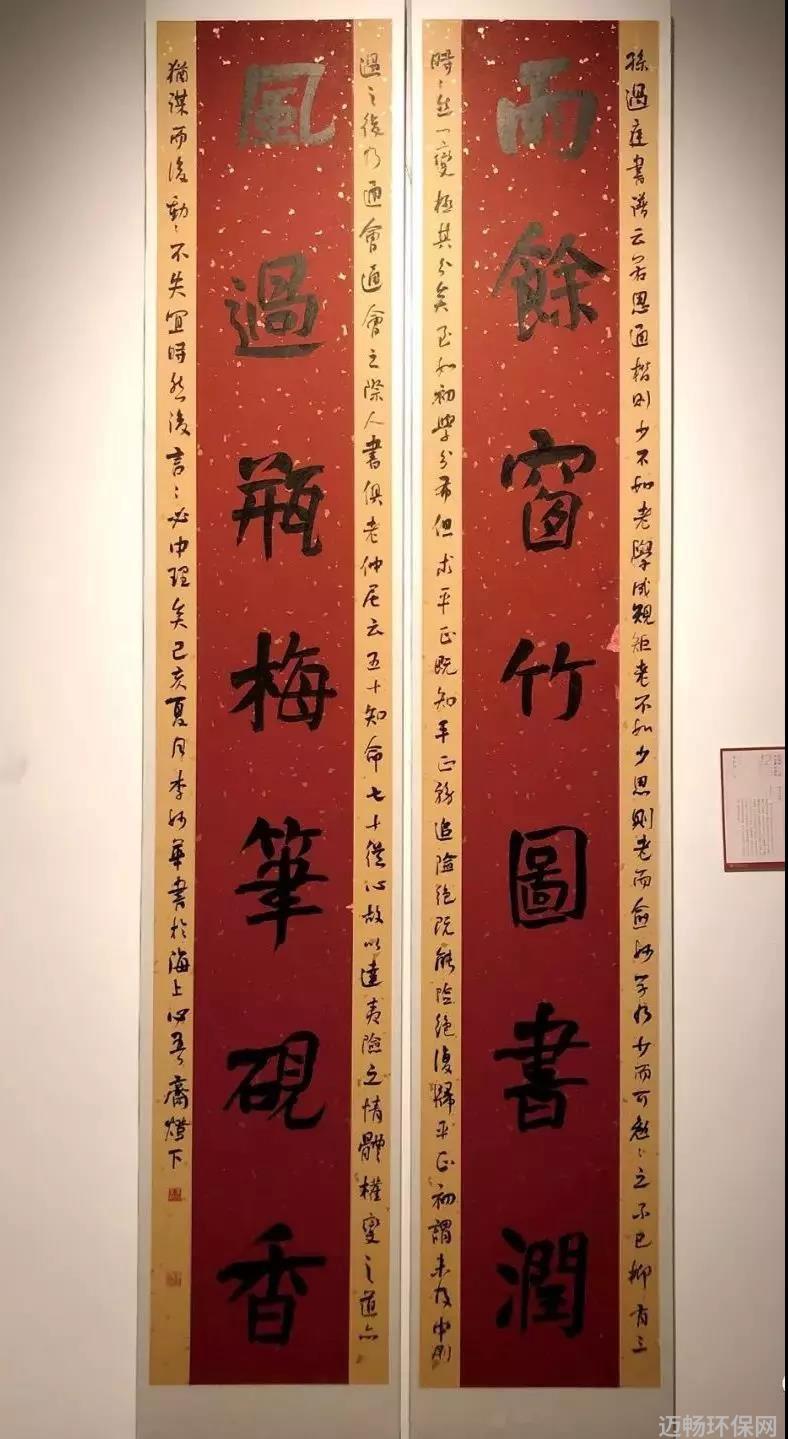 孫過庭書譜云若思通楷則少不如老學成規矩老不如少思則老而愈妙學乃少而可勉〻之不已抑有三
雨餘窗竹圖書潤
時〻然一變極其分矣至如初學分布但求平正既知平正務追險絕既能險絕復歸平正初謂未及中則
過之後乃通會通會之際人書俱老仲尼云五十知命七十從心故以達夷險之情體權變之道亦
風過瓶梅筆硯香
猶謀而後動〻不失宜時然後言〻必中理矣己亥夏月李妙華書於海上心吾齋燈下
迈畅环保网